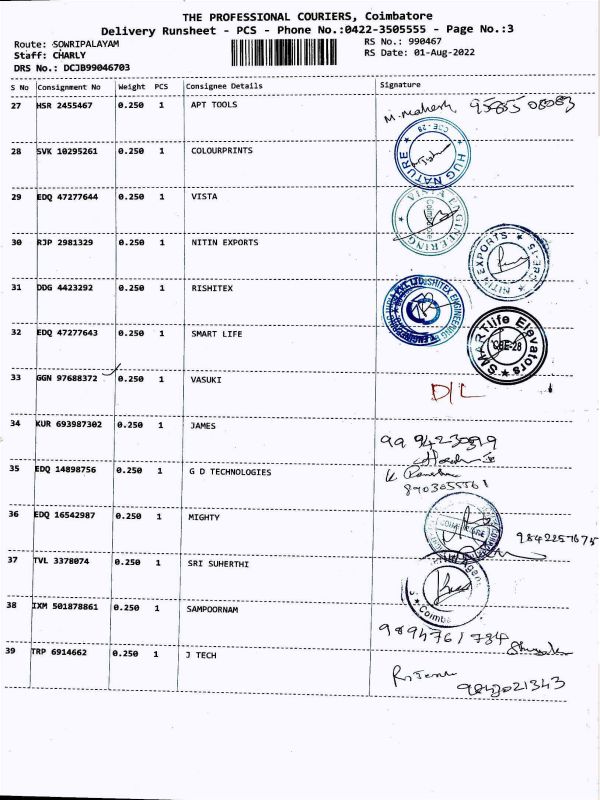 THE PROFESSIONAL COURIERS, Coimbatore
Delivery Runsheet - PCS - Phone No.:0422-3505555 - Page No.:3
Route: SOWRIPALAYAM RS No.: 990467
Staff: CHARLY RS Date: 01-Aug-2022
DRS No.: DCJB99046703
S No Consignment No Weight PCS Consignee Details Signature
27 HSR 2455467 0.250 1 APT TOOLS M. Mahesh
CBE-28
28 SVK 10295261 0.250 1 COLOURPRINTS HUG NATURE
29 EDQ 47277644 0.250 1 VISTA VISTA ENGINEERING Coimbatore
30 RJP 2981329 0.250 1 NITIN EXPORTS NITIN EXPORTS CBE-15
31 DDG 4423292 0.250 1 RISHITEX
32 EDQ 47277643 0.250 1 SMART LIFE SMARTlife Elevators CBE-28
33 GGN 97688372 0.250 1 VASUKI D/L
34 KUR 693987302 0.250 1 JAMES
35 EDQ 14898756 0.250 1 G D TECHNOLOGIES
8903055561
36 EDQ 16542987 0.250 1 MIGHTY COIMBATORE
9842257675
37 TVL 3378074 0.250 1 SRI SUHERTHI
38 IXM 501878861 0.250 1 SAMPOORNAM
9894761784
39 TRP 6914662 0.250 1 J TECH
9843021343